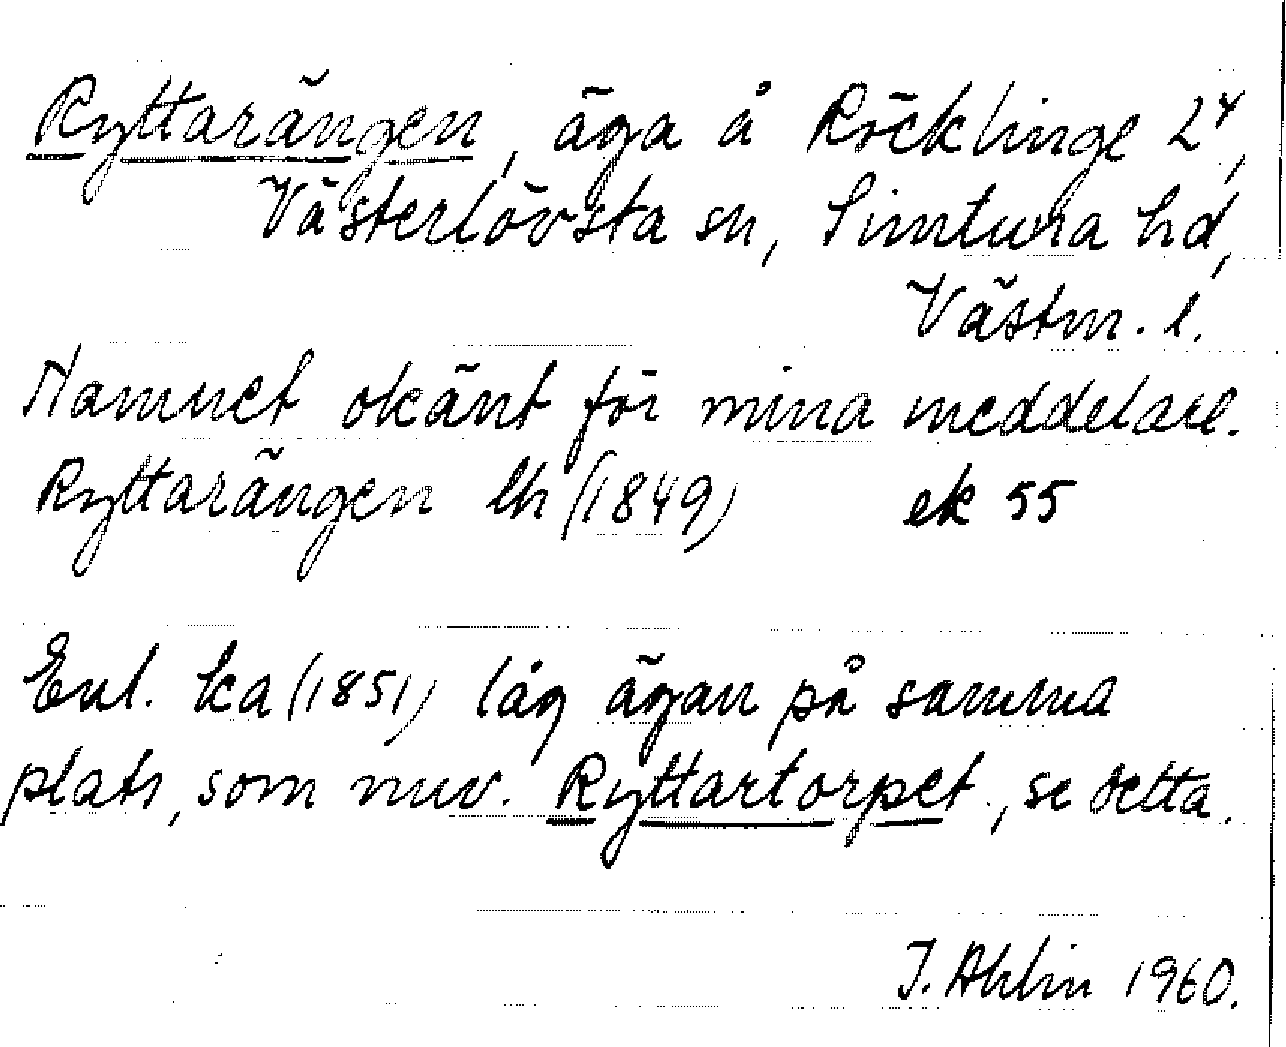 Ryttarängen, äga å Röcklinge 2⁴,
Västerlövsta sn, Simtuna hd,
Västm. l.
Namnet okänt för mina meddelare.
Ryttarängen lh (1849) ek 55
Enl. ka (1851) låg ägan på samma
plats, som nuv. Ryttartorpet, se detta.
I. Ahlin 1960.